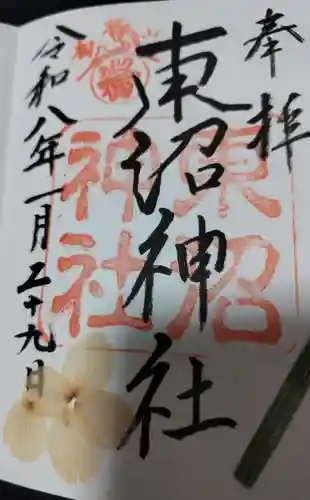 奉拝
東沼神社
東沼
神社
令和八年一月二十九日